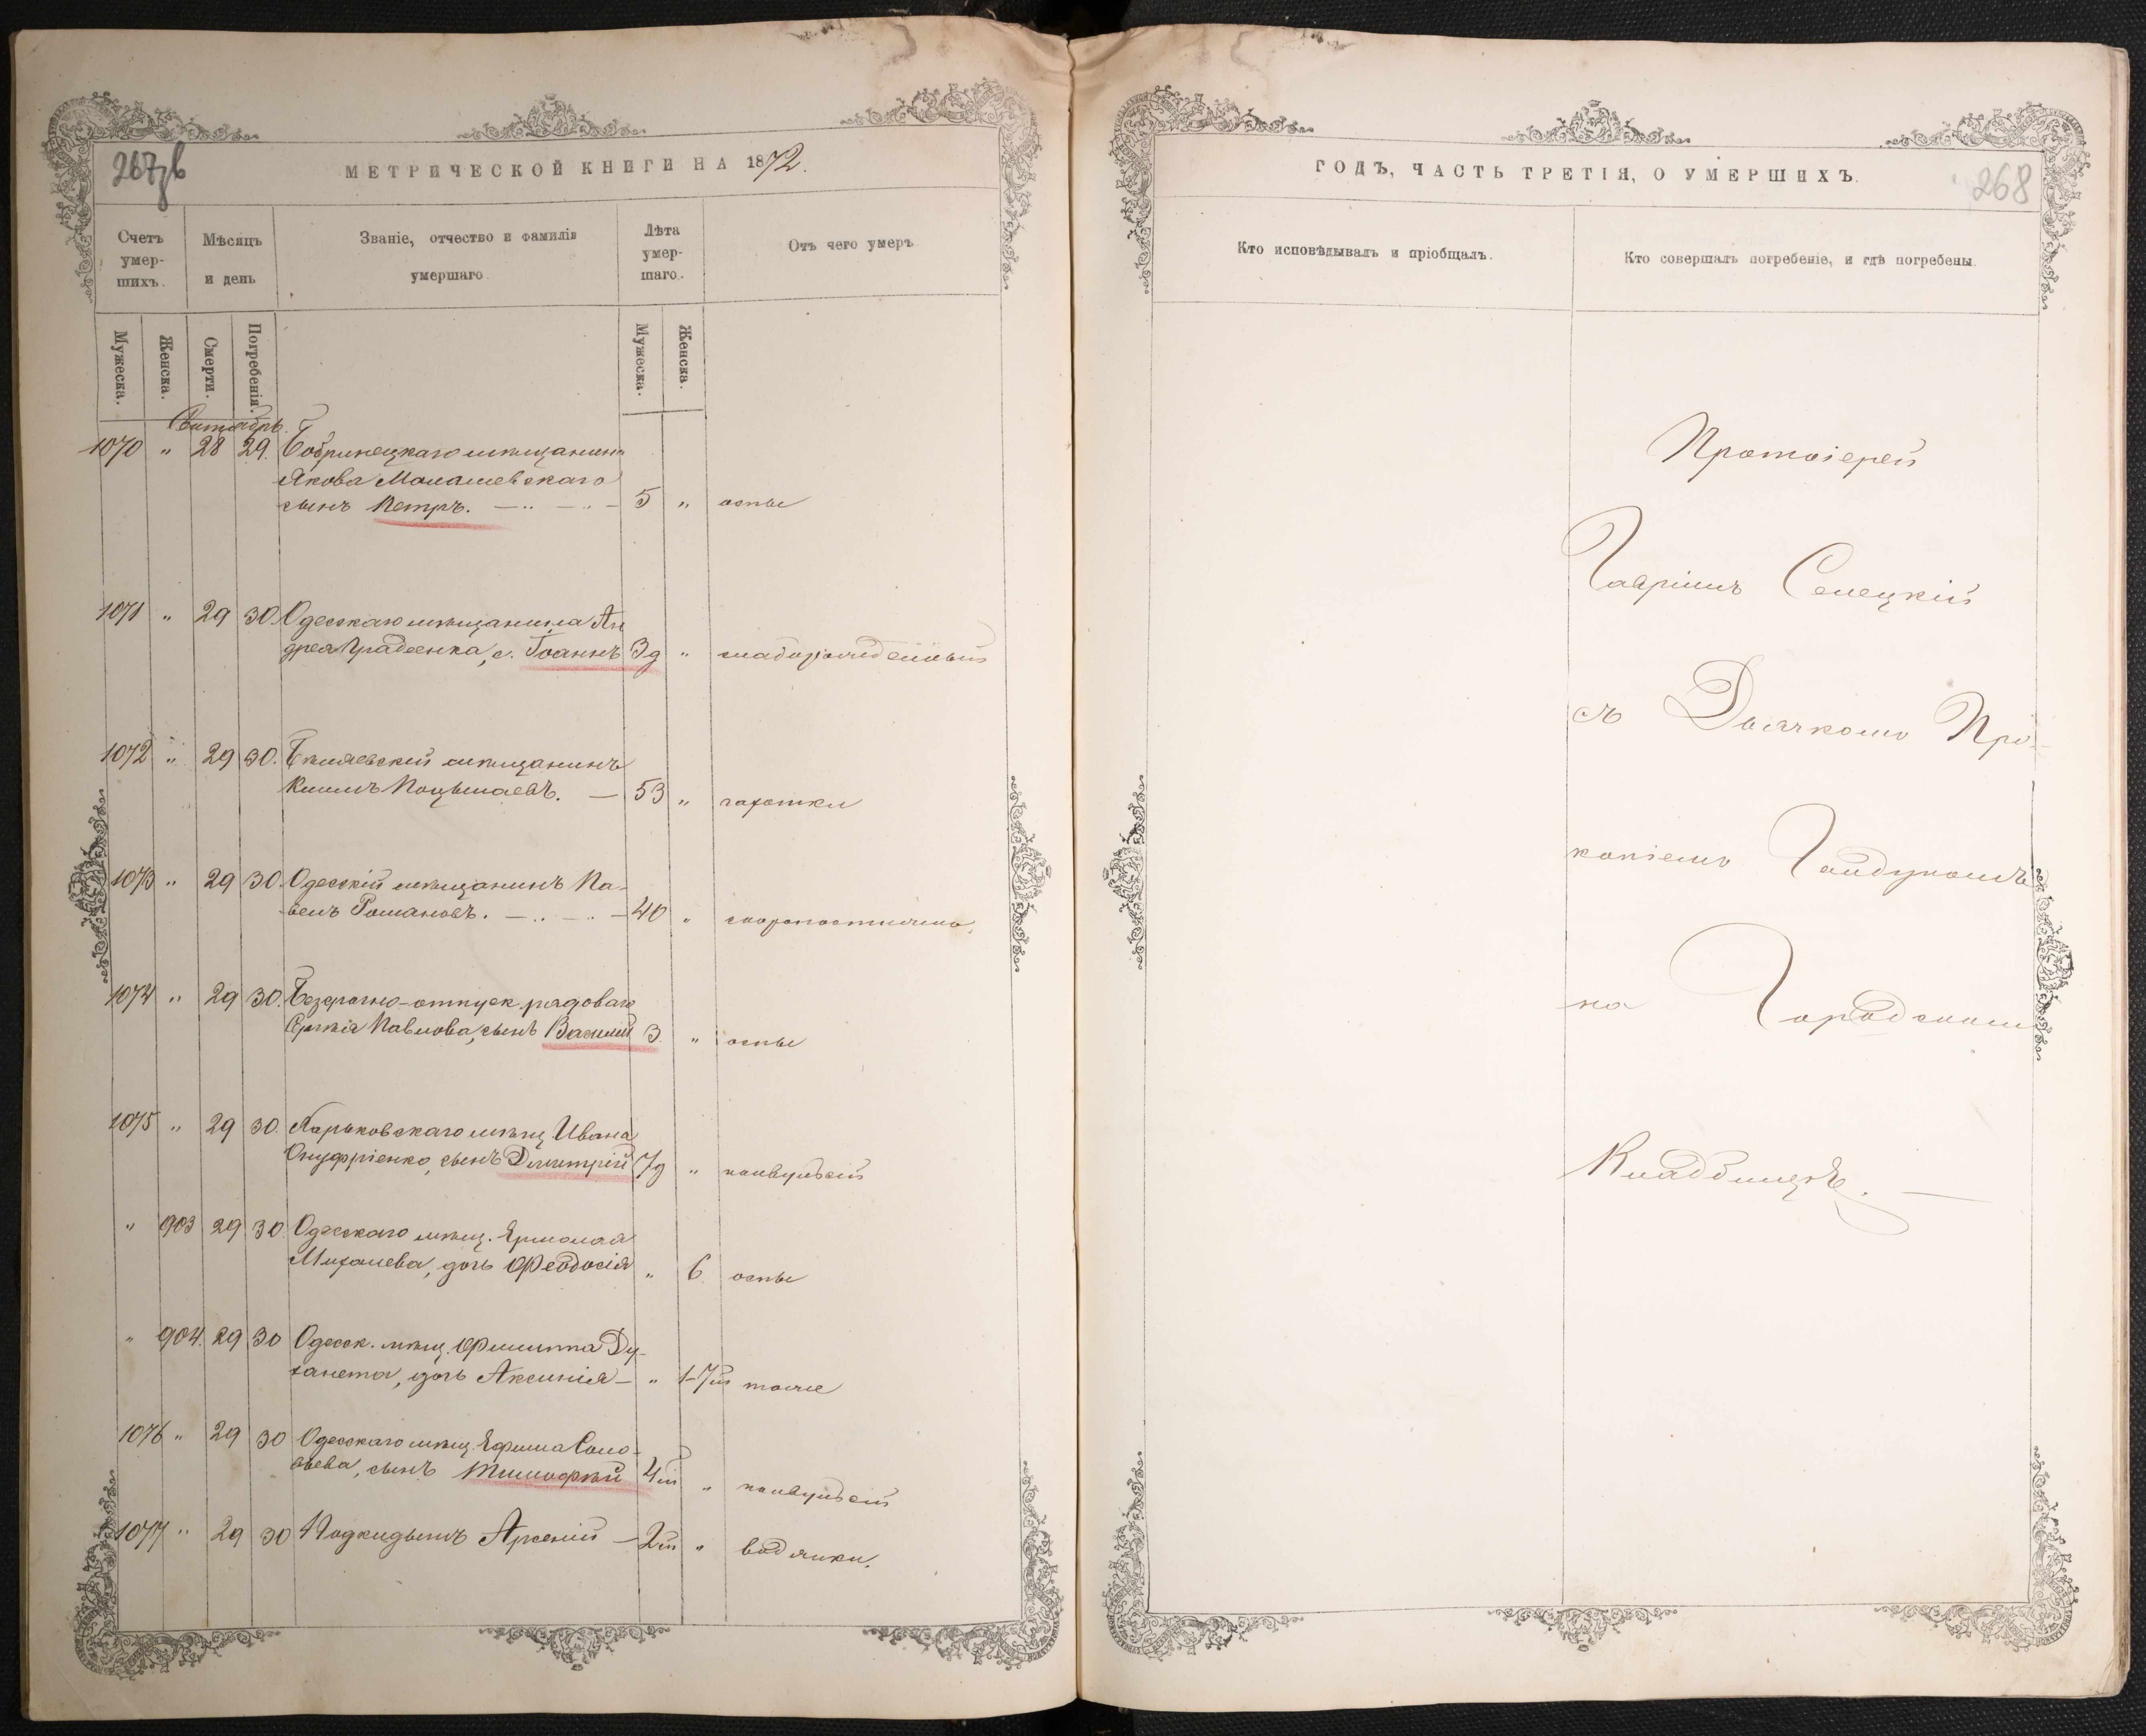 267зв
МЕТРИЧЕСКОЙ КНИГИ НА 1872.
Счетъ умер-шихъ.
Мѣсяцъ и день
Званіе, отчество и фамилія умершаго
Лѣта умер-шаго.
Отъ чего умеръ
Мужеска.
Женска.
Смерти.
Погребенія.
Мужеска.
Женска.
Сентябрь.
1070 " 28 29. Бобринецкаго мѣщанина
Якова
сынъ Петръ. 5 " оспы
1071 " 29 30. Одесскаго мѣщанина Ан
дрея Градеенка, с. Іоаннъ 3д " слаборожденный
1072 " 29 30. мѣщанинъ
53 " чахотки
1073 " 29 30. Одесскій мѣщанинъ Па-
велъ Романовъ. 40 " скоропостижно.
1074 " 29 30. Безсрочно-отпуск. рядоваго
Сергія Павлова, сынъ Василій 3. " оспы
1075 " 29 30. Харьковскаго мѣщ Ивана
Онуфріенко, сынъ Димитрій 7д " конвульсій
" 903 29 30 Одесскаго мѣщ. Ермолая
Михалева, дочь Феодосія " 6 оспы
" 904. 29 30 Одесск. мѣщ. Филиппа Ду-
ханета, дочь Аксинія " 1-7м тоже
1076 " 29 30 Одесскаго мѣщ. Ефима Соло-
вьева, сынъ Тимофѣй 4м " конвульсій
1077 " 29 30 Подкидышъ Арсеній 2м " водянки.
ГОДЪ, ЧАСТЬ ТРЕТІЯ, О УМЕРШИХЪ.
268
Кто исповѣдывалъ и пріобщалъ.
Кто совершалъ погребеніе, и гдѣ погребены.
Протоіерей
Гавріилъ Селецкій
съ Дьячкомъ Про-
копіемъ Гайдукомъ
на Городскомъ
Кладбищѣ.